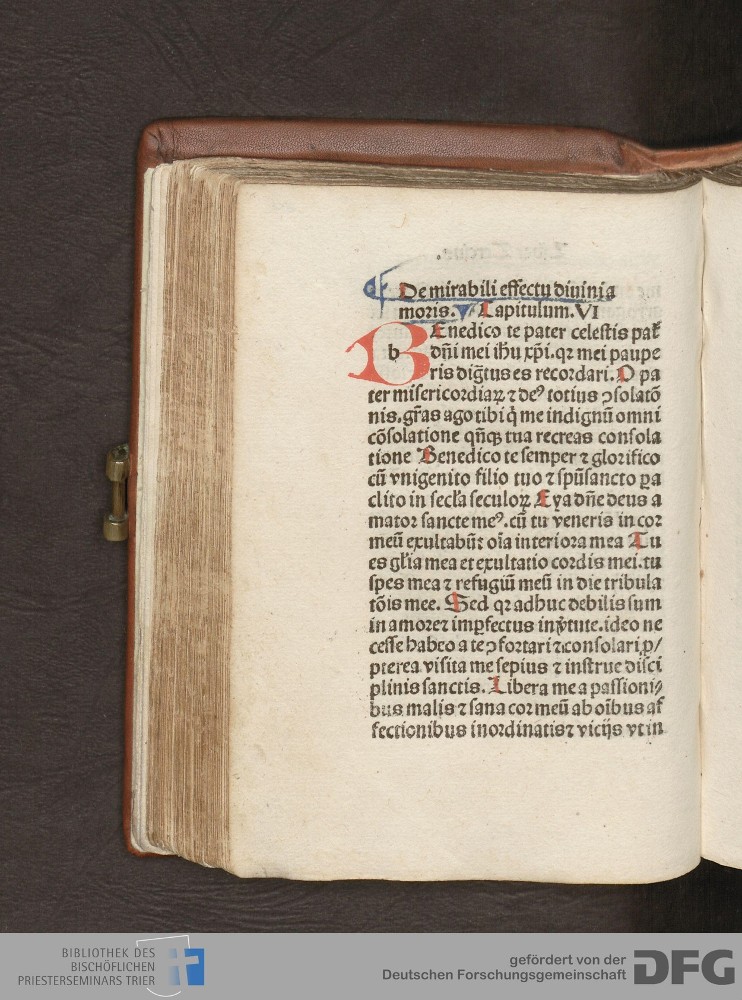 De mirabili effectu diuini a
moris. Capitulum. VI
BEnedico te pater celestis pat̃
b dñi mei ihũ xp̃i. qꝛ mei paupe
ris dig̃tus es recordari. O pa
ter misericordiaꝝ ⁊ deꝰ totius ꝯsolatõ
nis. gr̃as ago tibi q̃ me indignũ omni
cõsolatione qñqꝫ tua recreas consola
tione Benedico te semper ⁊ glorifico
cũ vnigenito filio tuo ⁊ spũsancto ꝑa
clito in secl̃a seculoꝝ Eya dñe deus a
mator sancte meꝰ. cũ tu veneris in cor
meũ exultabũt oĩa interiora mea Tu
es gl̃ia mea et exultatio cordis mei. tu
spes mea ⁊ refugiũ meũ in die tribula
tõis mee. Sed qꝛ adhuc debilis sum
in amore ⁊ imꝑfectus in ṽtute. ideo ne
cesse habeo a te ꝯfortari ⁊ consolari. ꝓ/
pterea visita me sepius ⁊ instrue disci
plinis sanctis. Libera me a passioni⸗
bus malis ⁊ sana cor meũ ab oĩbus af
fectionibus inordinatis ⁊ vicijs vt in
BIBLIOTHEK DES
BISCHÖFLICHEN
PRIESTERSEMINARS TRIER
gefördert von der
Deutschen Forschungsgemeinschaft
DFG